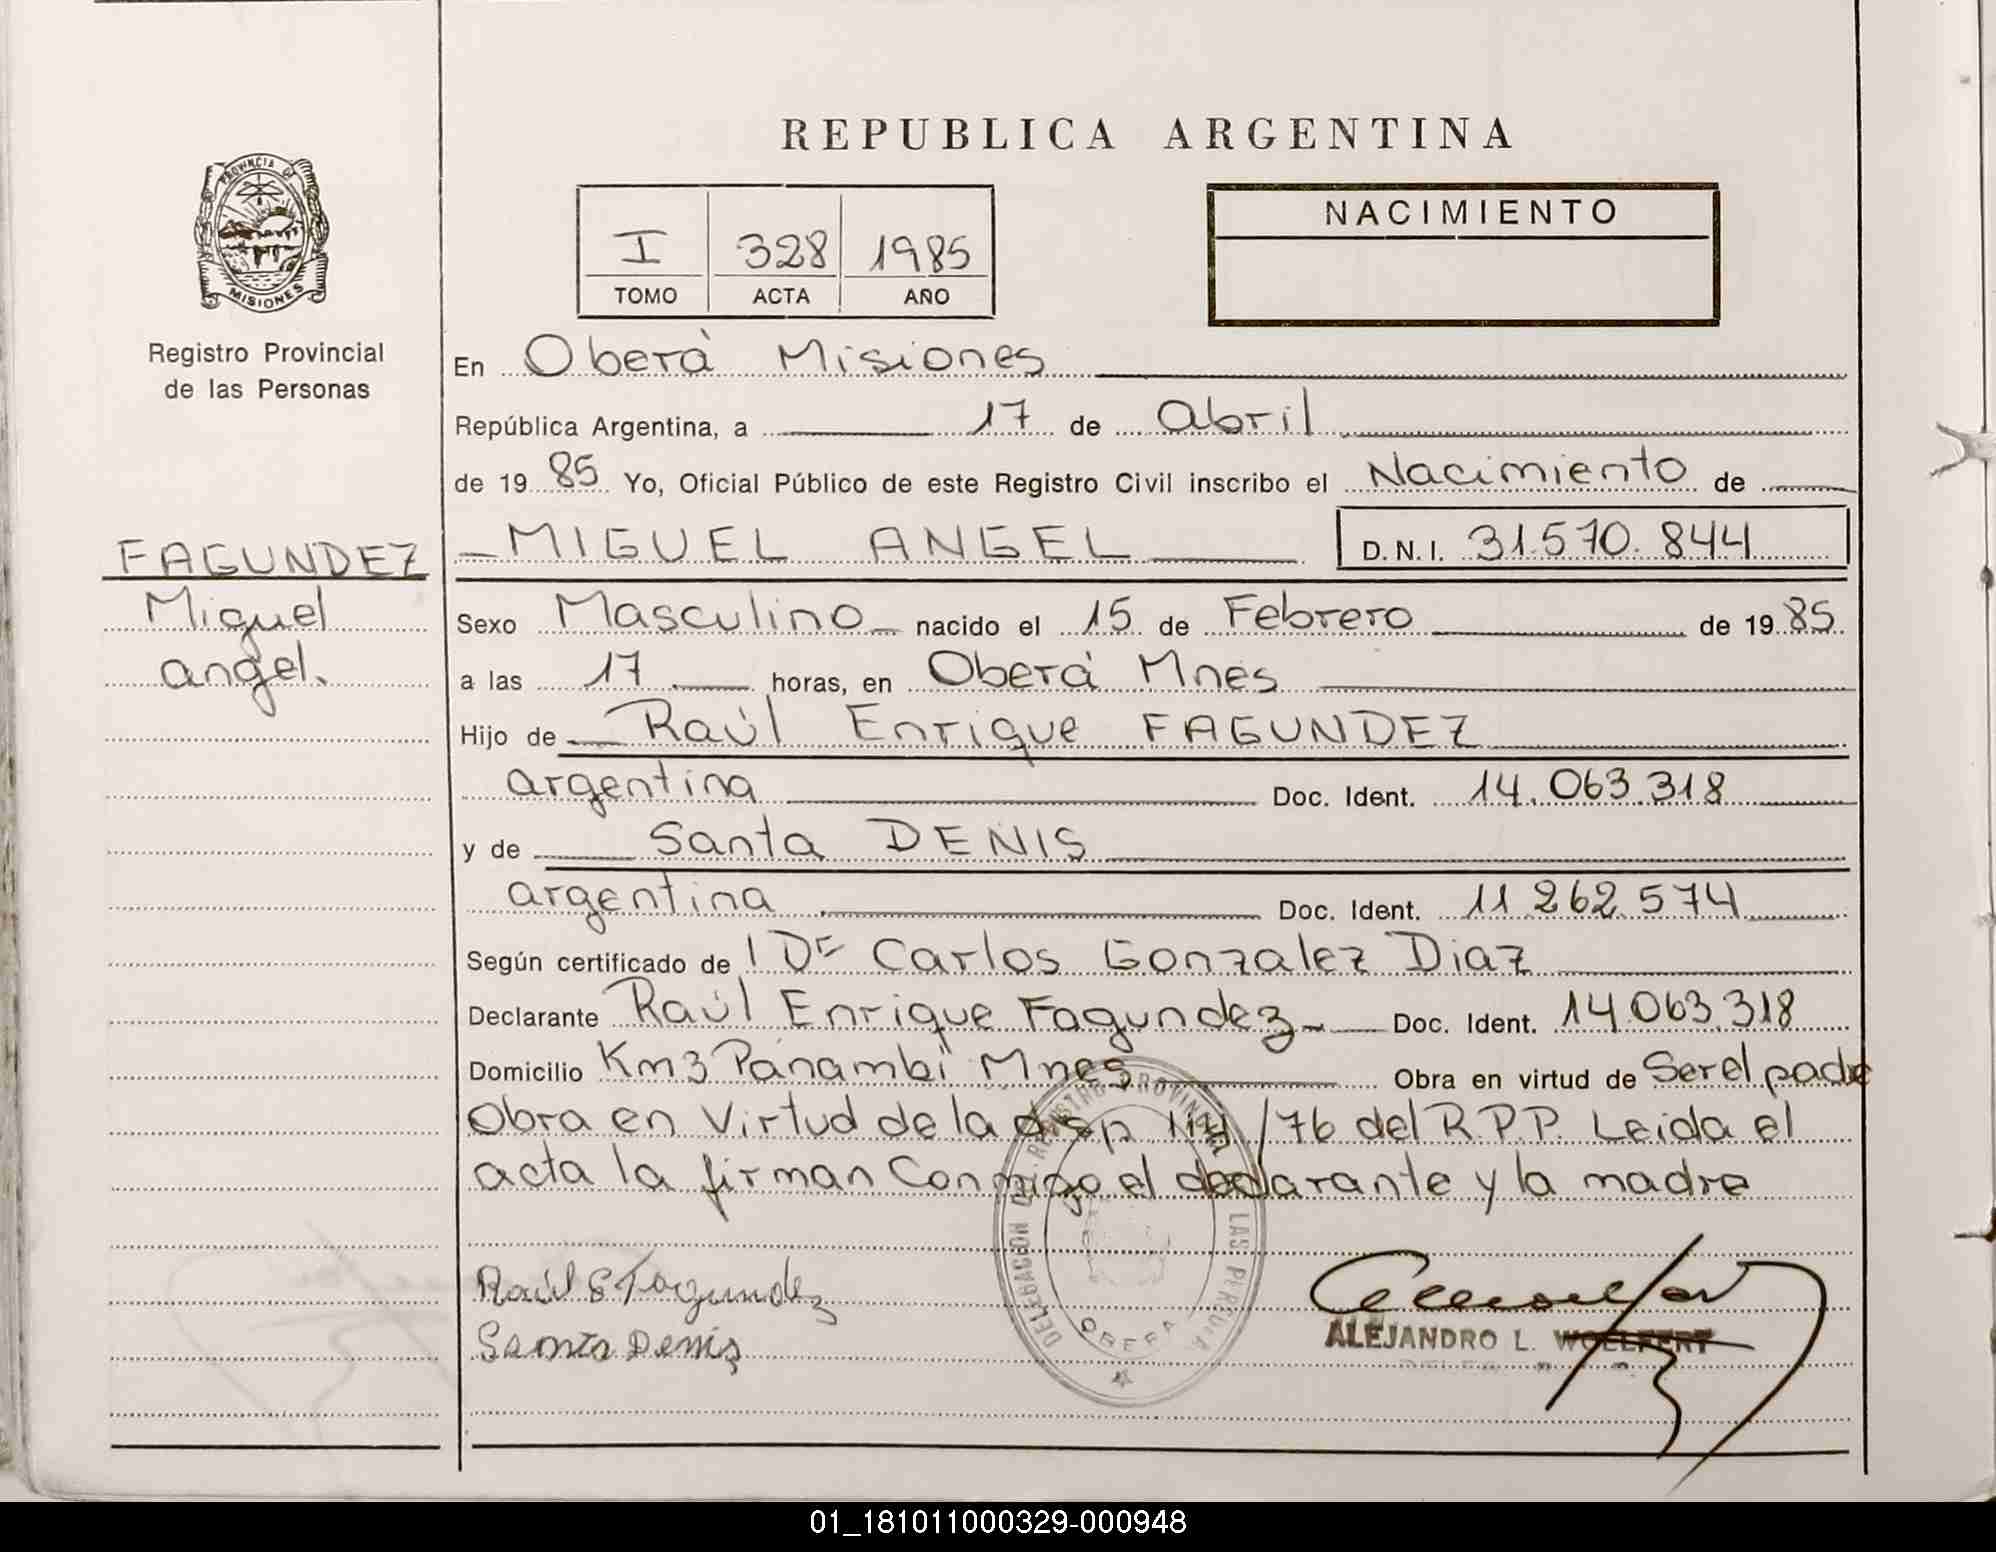 REPUBLICA ARGENTINA
PROVINCIA DE
MISIONES
Registro Provincial
de las Personas
I 328 1985
TOMO ACTA AÑO
NACIMIENTO
En Oberá Misiones
República Argentina, a 17 de Abril
de 1985 Yo, Oficial Público de este Registro Civil inscribo el Nacimiento de
FAGUNDEZ
Miguel
angel.
MIGUEL ANGEL D.N.I. 31.570.844
Sexo Masculino nacido el 15 de Febrero de 1985
a las 17 horas, en Oberá Mnes
Hijo de Raúl Enrique FAGUNDEZ
argentina Doc. Ident. 14.063.318
y de Santa DENIS
argentina Doc. Ident. 11.262.574
Según certificado de Dr Carlos Gonzalez Diaz
Declarante Raúl Enrique Fagundez Doc. Ident. 14.063.318
Domicilio Km3 Panambí Mnes Obra en virtud de Ser el padre
Obra en Virtud de la dsp /76 del R.P.P. Leida el
acta la firman Conmigo el declarante y la madre
Raúl E Fagundez
Santa Denis
DELEGACION DEL REGISTRO PROVINCIAL DE LAS PERSONAS
OBERA
ALEJANDRO L. WOELFERT
01_181011000329-000948